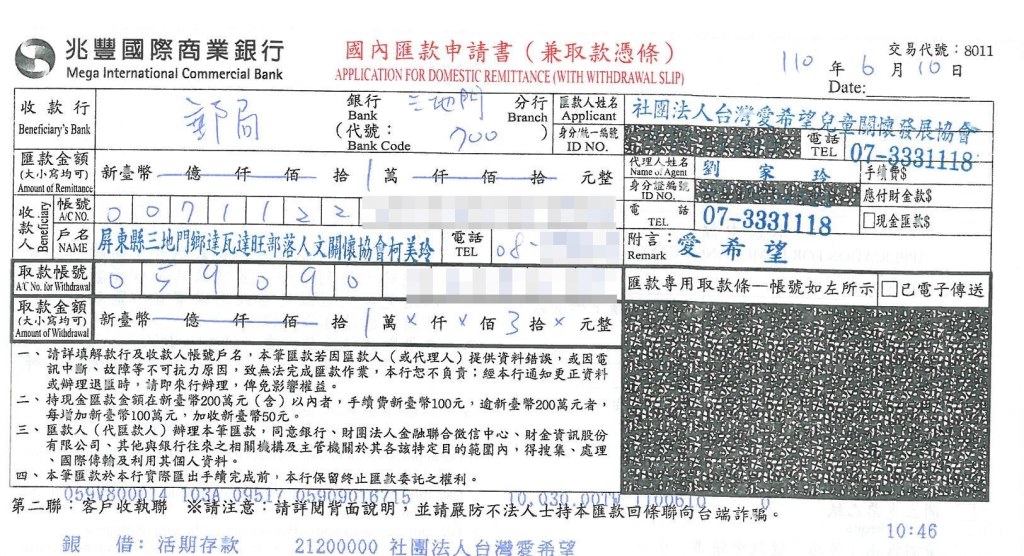 兆豐國際商業銀行
Mega International Commercial Bank
國內匯款申請書（兼取款憑條）
APPLICATION FOR DOMESTIC REMITTANCE (WITH WITHDRAWAL SLIP)
交易代號：8011
110 年 6 月 10 日
Date:
收款行 Beneficiary's Bank 郵局 銀行 Bank （代號： Bank Code 700 ） 三地門 分行 Branch
匯款人姓名 Applicant 社團法人台灣愛希望兒童關懷發展協會
身分/統一編號 ID NO. 電話 TEL 07-3331118
匯款金額 (大小寫均可) Amount of Remittance 新臺幣 — 億 — 仟 — 佰 — 拾 1 萬 — 仟 — 佰 — 拾 — 元整
代理人姓名 Name of Agent 劉家玲 手續費$
身分證編號 ID NO. 應付財金款$
收款人 Beneficiary 帳號 A/C NO. 0071122
電話 TEL 07-3331118 □現金匯款$
戶名 NAME 屏東縣三地門鄉達瓦達旺部落人文關懷協會柯美玲 電話 TEL 08-
附言： Remark 愛希望
取款帳號 A/C No. for Withdrawal 059090
匯款專用取款條—帳號如左所示 □已電子傳送
取款金額 (大小寫均可) Amount of Withdrawal 新臺幣 — 億 — 仟 — 佰 拾 1 萬 × 仟 × 佰 3 拾 × 元整
一、請詳填解款行及收款人帳號戶名，本筆匯款若因匯款人（或代理人）提供資料錯誤，或因電
訊中斷、故障等不可抗力原因，致無法完成匯款作業，本行恕不負責；經本行通知更正資料
或辦理退匯時，請即來行辦理，俾免影響權益。
二、持現金匯款金額在新臺幣200萬元（含）以內者，手續費新臺幣100元，逾新臺幣200萬元者，
每增加新臺幣100萬元，加收新臺幣50元。
三、匯款人（代匯款人）辦理本筆匯款，同意銀行、財團法人金融聯合徵信中心、財金資訊股份
有限公司、其他與銀行往來之相關機構及主管機關於其各該特定目的範圍內，得搜集、處理
、國際傳輸及利用其個人資料。
四、本筆匯款於本行實際匯出手續完成前，本行保留終止匯款委託之權利。
059V800014 103A 09517 05909016715 10,030.00TW 1100610 0
第二聯：客戶收執聯 ※請注意：請詳閱背面說明，並請嚴防不法人士持本匯款回條聯向台端詐騙。
10:46
銀 借：活期存款 21200000 社團法人台灣愛希望